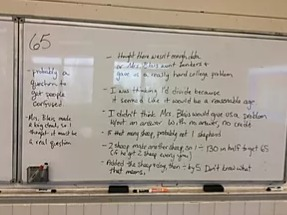 65
- probably a
question to
get people
confused.
- Mrs. Blais made
a big deal, so I
thought it must be
a real question
- thought there wasn't enough data
or Mrs. Blais went bonkers &
gave us a really hard college problem
- I was thinking I'd divide because
it seemed like it would be a reasonable age
- I didn't think Mrs. Blais would give us a problem
w/out an answer. With no answer, no credit
- If that many sheep, probably not 1 shepherd
- 2 sheep make another sheep, so I ÷ 130 in half to get 65
(to get 2 sheep every year)
- Added the sheep & dog, then ÷ by 5. Don't know what
that means.